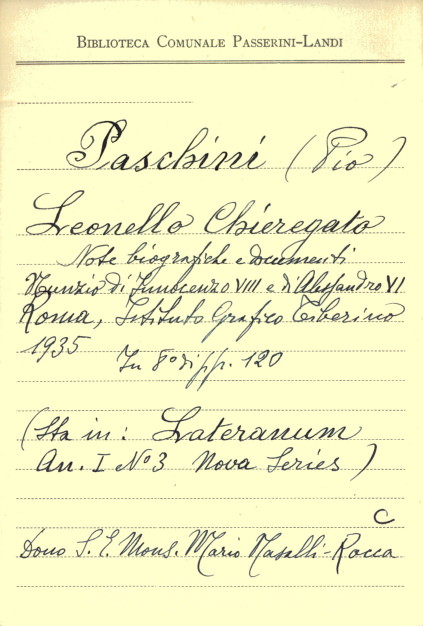 BIBLIOTECA COMUNALE PASSERINI-LANDI
Paschini (Pio)
Leonello Chieregato
Note biografiche e documenti
Nunzio di Innocenzo VIII e di Alessandro VI
Roma, Istituto Grafico Tiberino
1935 In 8° di pp. 120
(Sta in: Lateranum
An. I N° 3 Nova Series)
C
Dono S. E. Mons. Mario Nasalli-Rocca